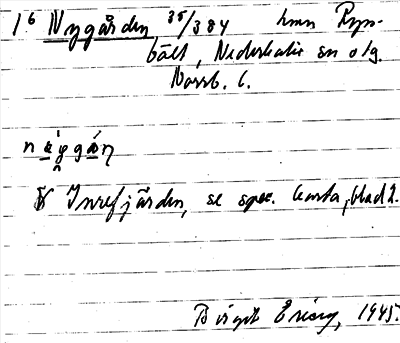 16 Nygården 35/384 hmn Ryn-
bält, Nederkalix sn o lg.
Norrb. l.
nẹ́ygán
Innefjärden, se spec. karta, blad 2.
Birgit Ericson, 1945.